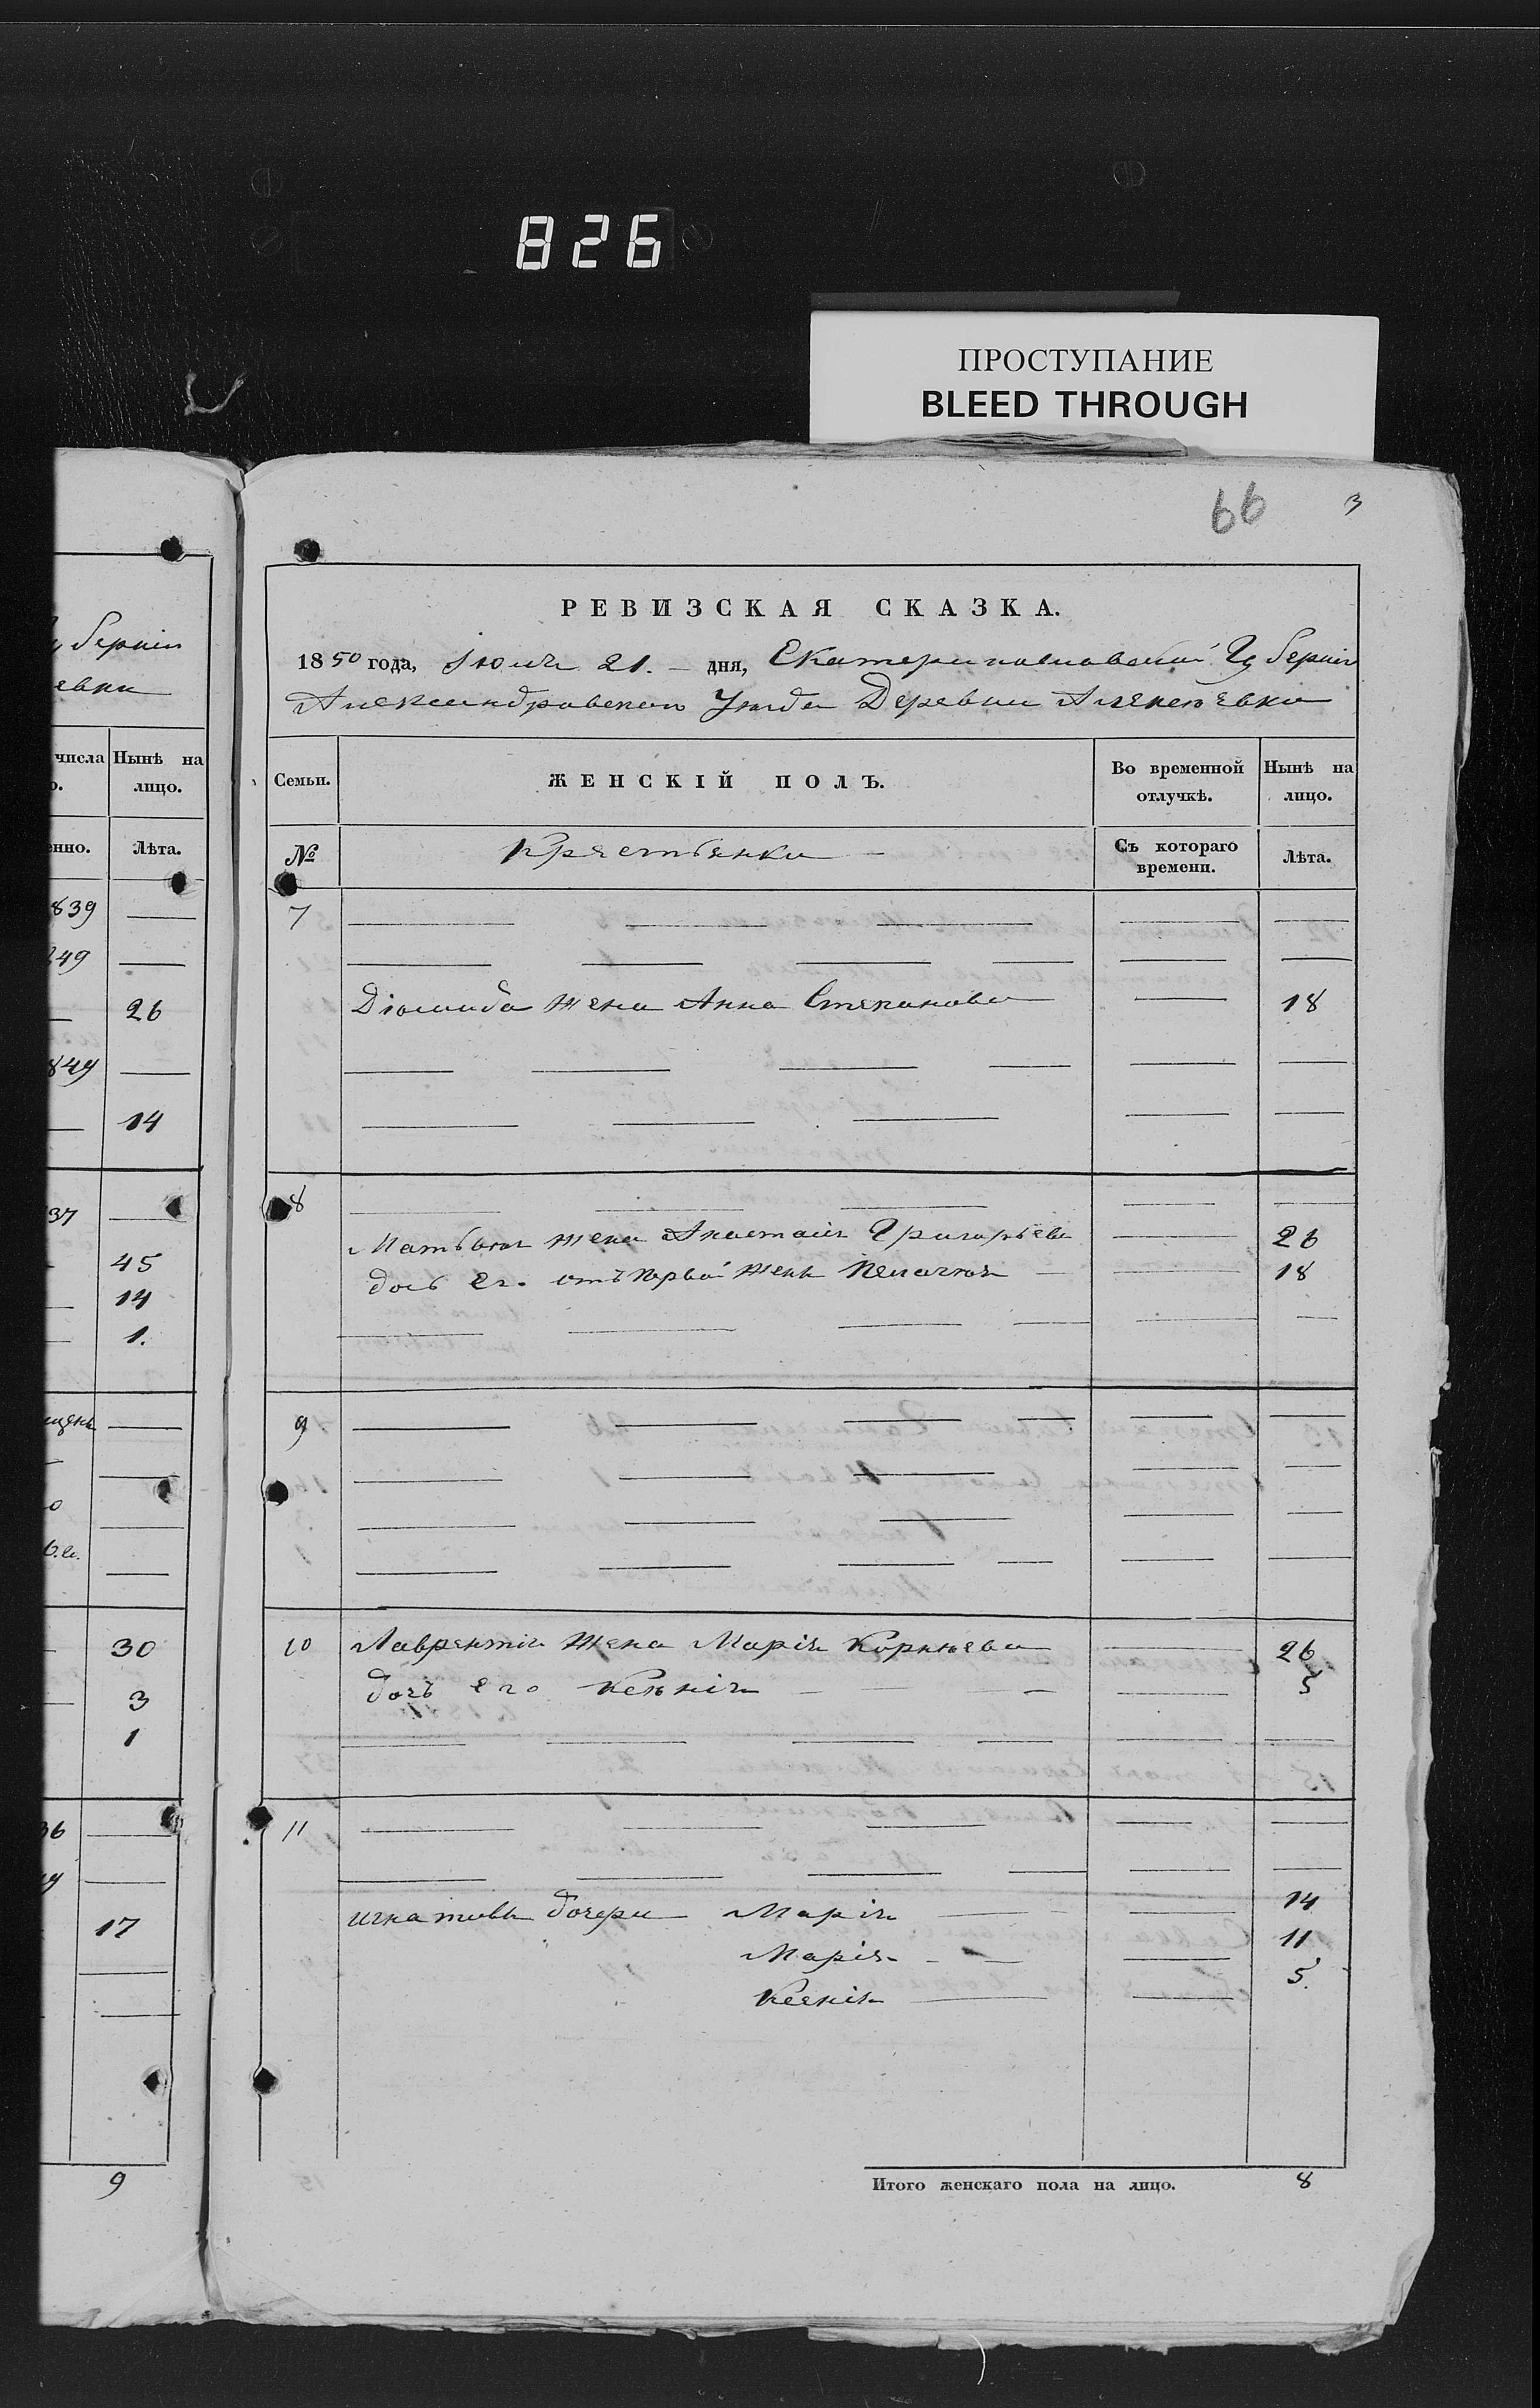 826
ПРОСТУПАНИЕ
BLEED THROUGH
66 3
РЕВИЗСКАЯ СКАЗКА.
1850 года, Июля 21. дня, Екатеринославской Губерніи
Александровскаго Уезда Деревни Алексеевки
Семьи. ЖЕНСКІЙ ПОЛЪ. Во временной отлучкѣ. Нынѣ на лицо.
№ Крестьянки Съ котораго времени. Лѣта.
7
Діомида жена Анна Степанова 18
8
Матвея жена Анастасія Григорьева 26
дочь его отъ первой жены Пелагея 18
9
10 Лаврентія жена Марія Корнѣева 26
дочь его Ксенія 5
11
Игнатовы дочери Марія 14
Марія 11
Ксенія 5.
Итого женскаго пола на лицо. 8
губерніи
евки
числа Нынѣ на
о. лицо.
енно. Лѣта.
839
849
26
849
14
37
45
14
1.
30
3
1
36
17
9